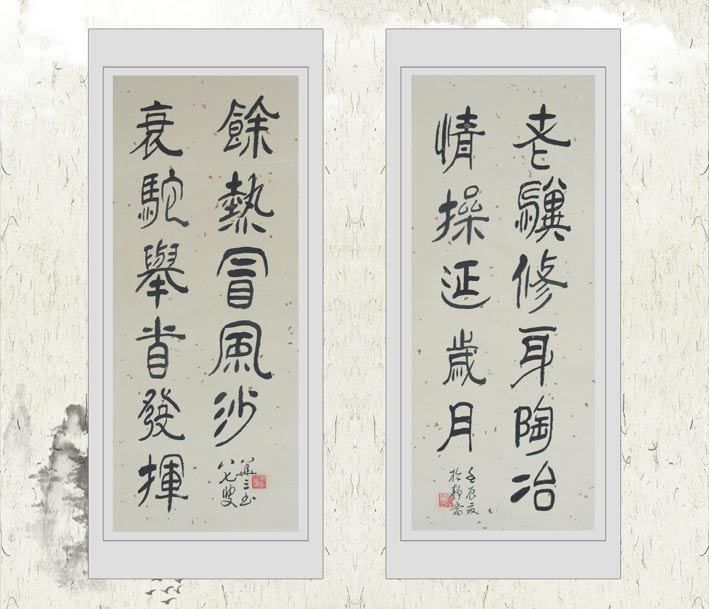 老驥修身陶冶
情操延歲月
壬辰夏
於靜齋
衰駝舉首發揮
餘熱冒風沙
八七叟